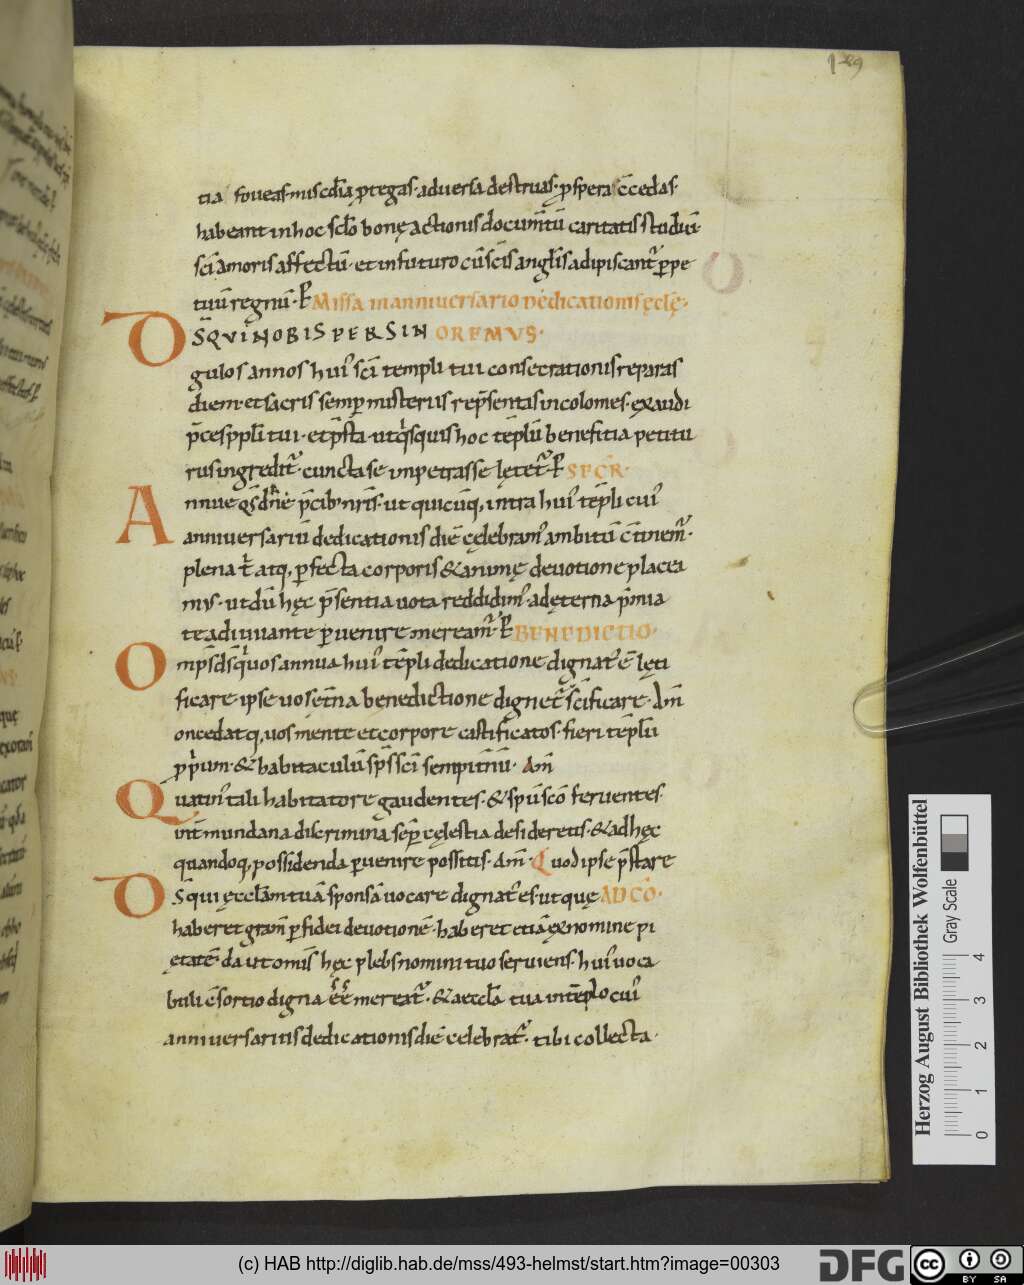 149
tia foveas misc̄dia p̱tegas · adversa destruas · p̱spera c̄cedas ·
habeant in hoc sc̄lo bonę actionis docum̄tū caritatis studiū ·
sc̄i amoris affectū · et in futuro cū sc̄is angl̄is adipiscant᷑ p̱pe
tuū regnū · P̱ Missa in anniversario dedicationis ęclę ·
DS̄ QVI NOBIS PER SIN OREMVS ·
gulos annos hui᷒ sc̄i templi tui consecrationis reparas
diem · et sacris semp̱ misteriis rep̄sentas incolomes · exaudi
p̄ces pp̄li tui · et p̄sta · ut qͥsquis hoc tēplū benefitia petitu
rus ingredit᷑ · cuncta se impetrasse lętet᷑ · P̱ SECR̄ ·
Annue qs̄ dn̄e p̄cib᷒ nr̄is · ut quicūq, intra hui᷒ tēpli cui᷒
anniversariū dedicationis diē cęlebram᷒ ambitū c̄tinem᷒ ·
plena t̄ atq, p̱fecta corporis & animę devotione placea
mus · ut dū hęc p̄sentia vota reddidim᷒ · ad ęterna p̄mia
te adiuvante p̱venire meream᷑ · P̱ BENEDICTIO ·
Omp̄s ds̄ qͥ vos annua hui᷒ tēpli dedicatione dignat᷒ ē lęti
ficare · ipse vos et̄na benedictione dignet᷑ sc̄ificare · Am̄
oncedatq, vos mente et corpore castificatos · fieri tēplū
p̱p̱ium · & habitaculū sp̄s sc̄i sempit̄nū · Am̄
Quatin᷒ tali habitatore gaudentes · & sp̄u sc̄o ferventes
int̄ mundana discrimina sēp̱ cęlestia desideretis · & ad hęc
quandoq, possidenda p̱venire possitis · Am̄ · Quod ipse p̄stare
DS̄ qui ęccl̄am tuā sponsā vocare dignat᷒ es · ut quę AD CŌ ·
haberet gram̄ p̱ fidei devotionē · haberet etiā ex nomine pi
ętatē · da ut om̄is hęc plebs nomini tuo serviens · hui᷒ voca
buli c̄sortio digna ēē mereat᷑ · & aeccl̄a tua in tēplo cui᷒
anniversariis dedicationis diē celebrat᷑ · tibi collecta ·
Herzog August Bibliothek Wolfenbüttel
Gray Scale
0 1 2 3 4
(c) HAB http://diglib.hab.de/mss/493-helmst/start.htm?image=00303
DFG
cc BY SA